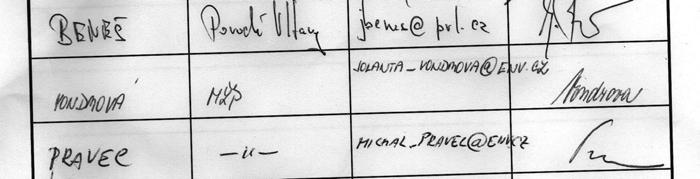 BENEŠ Povodí Vltavy jbenes@pvl.cz
VONDROVÁ MŽP JOLANTA_VONDROVA@ENV.CZ Vondrova
PRAVEC —॥— MICHAL_PRAVEC@ENV.CZ